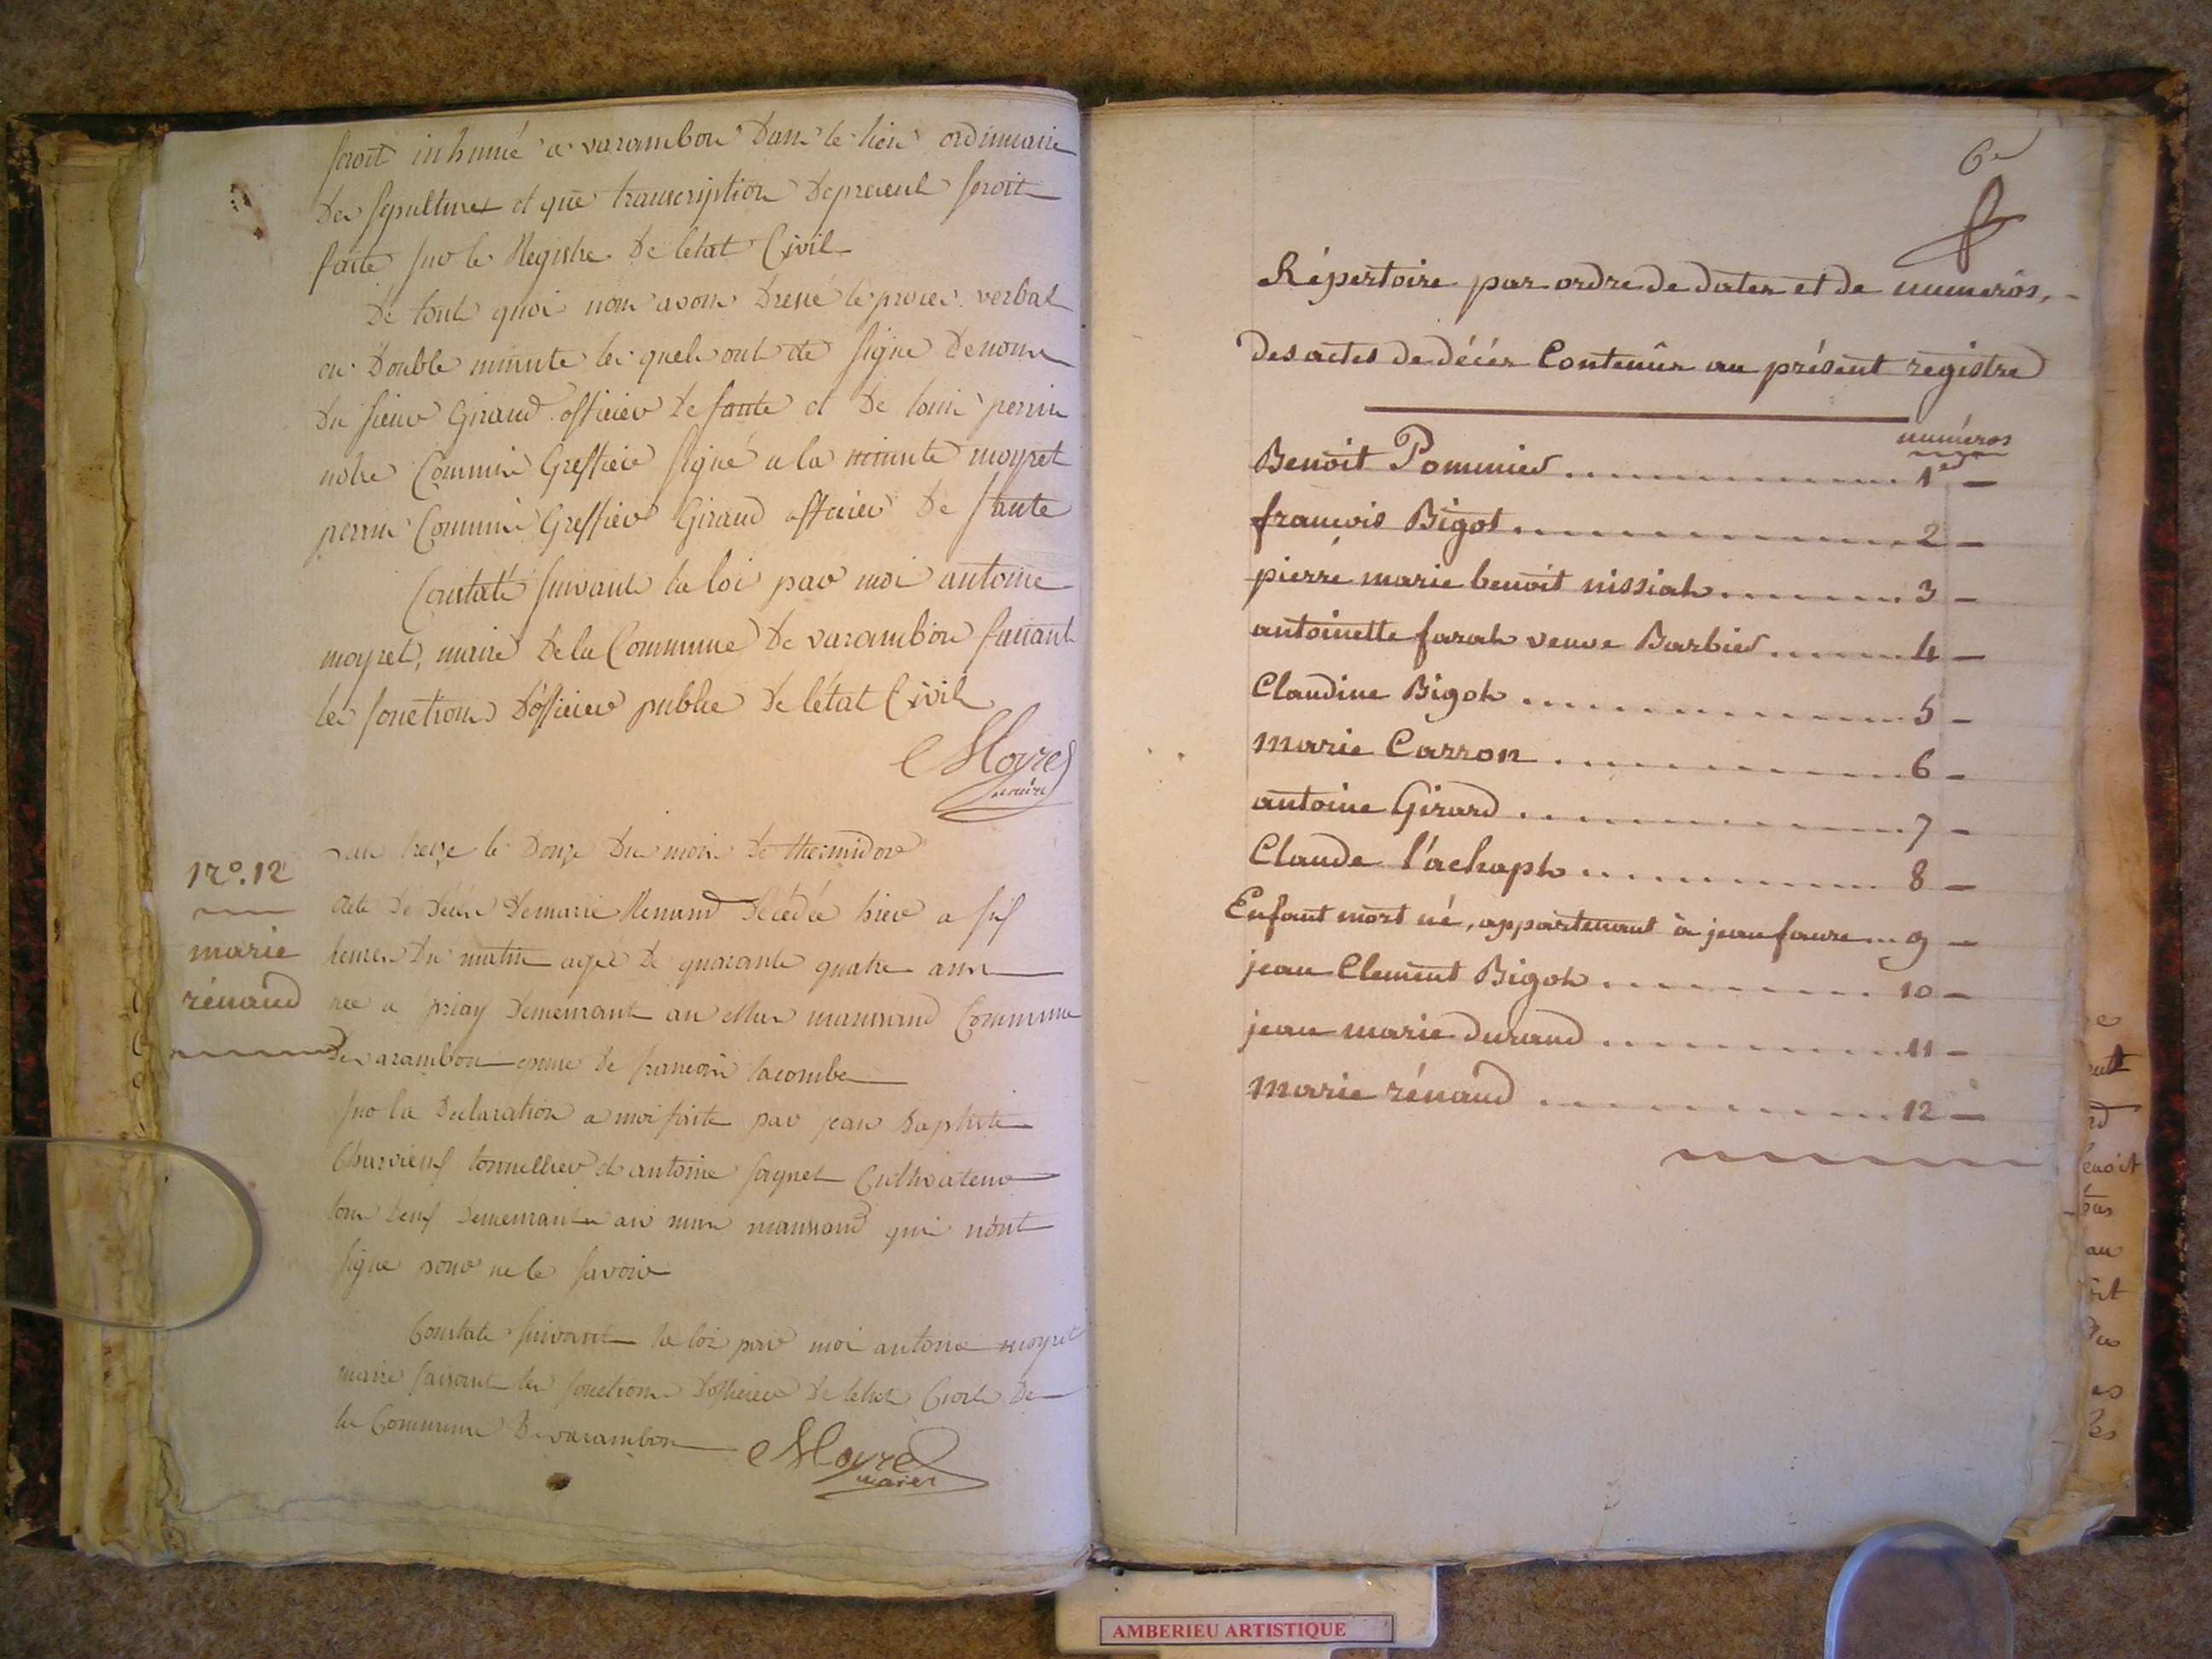 seroit inhumé a varambon Dans le lieu ordinnaire
Des sepultures et que transcription Depresent seroit
faite sur le Registre De letat Civil
De tout quoi nous avons Dressé le proces verbal
en Double minute les quels ont ete signe Denous
Du sieur Giraud officier de sante et De louis perrin
notre Commis Greffier signé a la minute moyret
perrin Commis Greffier Giraud officier De sante
Constaté suivant la loi par moi antoine
moyret, maire Dela Commune De varambon faisant
les fonctions D'officier public De letat Civil
Moyret
maire
N°. 12
marie
rénaud
lan treize le Douze Du mois De thermidor
Acte De Décès Demarie Renaud Décédée hier a six
heures Du matin agée De quarante quatre ans
née a priay Demeurant au mur manssand Commune
De varambon epouse De francois lacombe
sur la Declaration a moi faite par jean baptiste
tonnellier et antoine Cultivateur
tous Deux Demeurants au mur manssand qui n'ont
signe pour ne le savoir
Constate suivant la loi par moi antoine moyret
maire faisant les fonctions D'officier De letat Civil De
la Commune De varambon
Moyret
maire
6e
Répertoire par ordre de dates et de numerôs,
des actes de décès Contenûs au présent registre
numéros
Benoit Pommier 1er
françois Bigot 2
pierre marie benoit nissiat 3
antoinette farat veuve Barbier 4
Claudine Bigot 5
marie Carron 6
antoine Girard 7
Claude l'achapt 8
Enfant mort né, appartenant à jean faure 9
jean Clement Bigot 10
jean marie durand 11
marie rénaud 12
AMBERIEU ARTISTIQUE